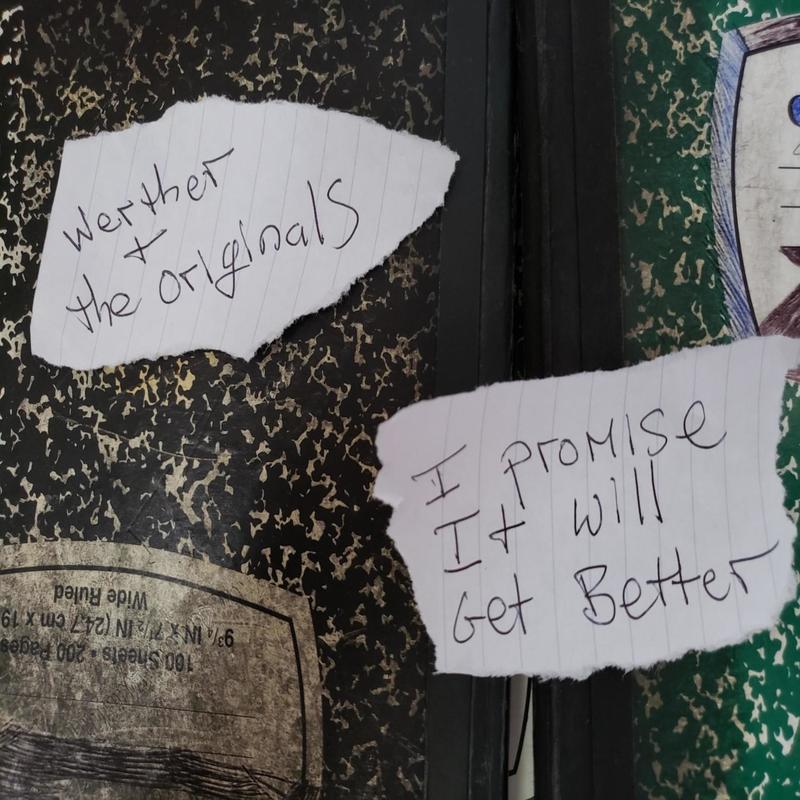 Werther
+
the originals
I promise
It will
Get Better
100 Sheets • 200 Pages
9 3/4 IN X 7 1/2 IN (24.7 cm x 19
Wide Ruled